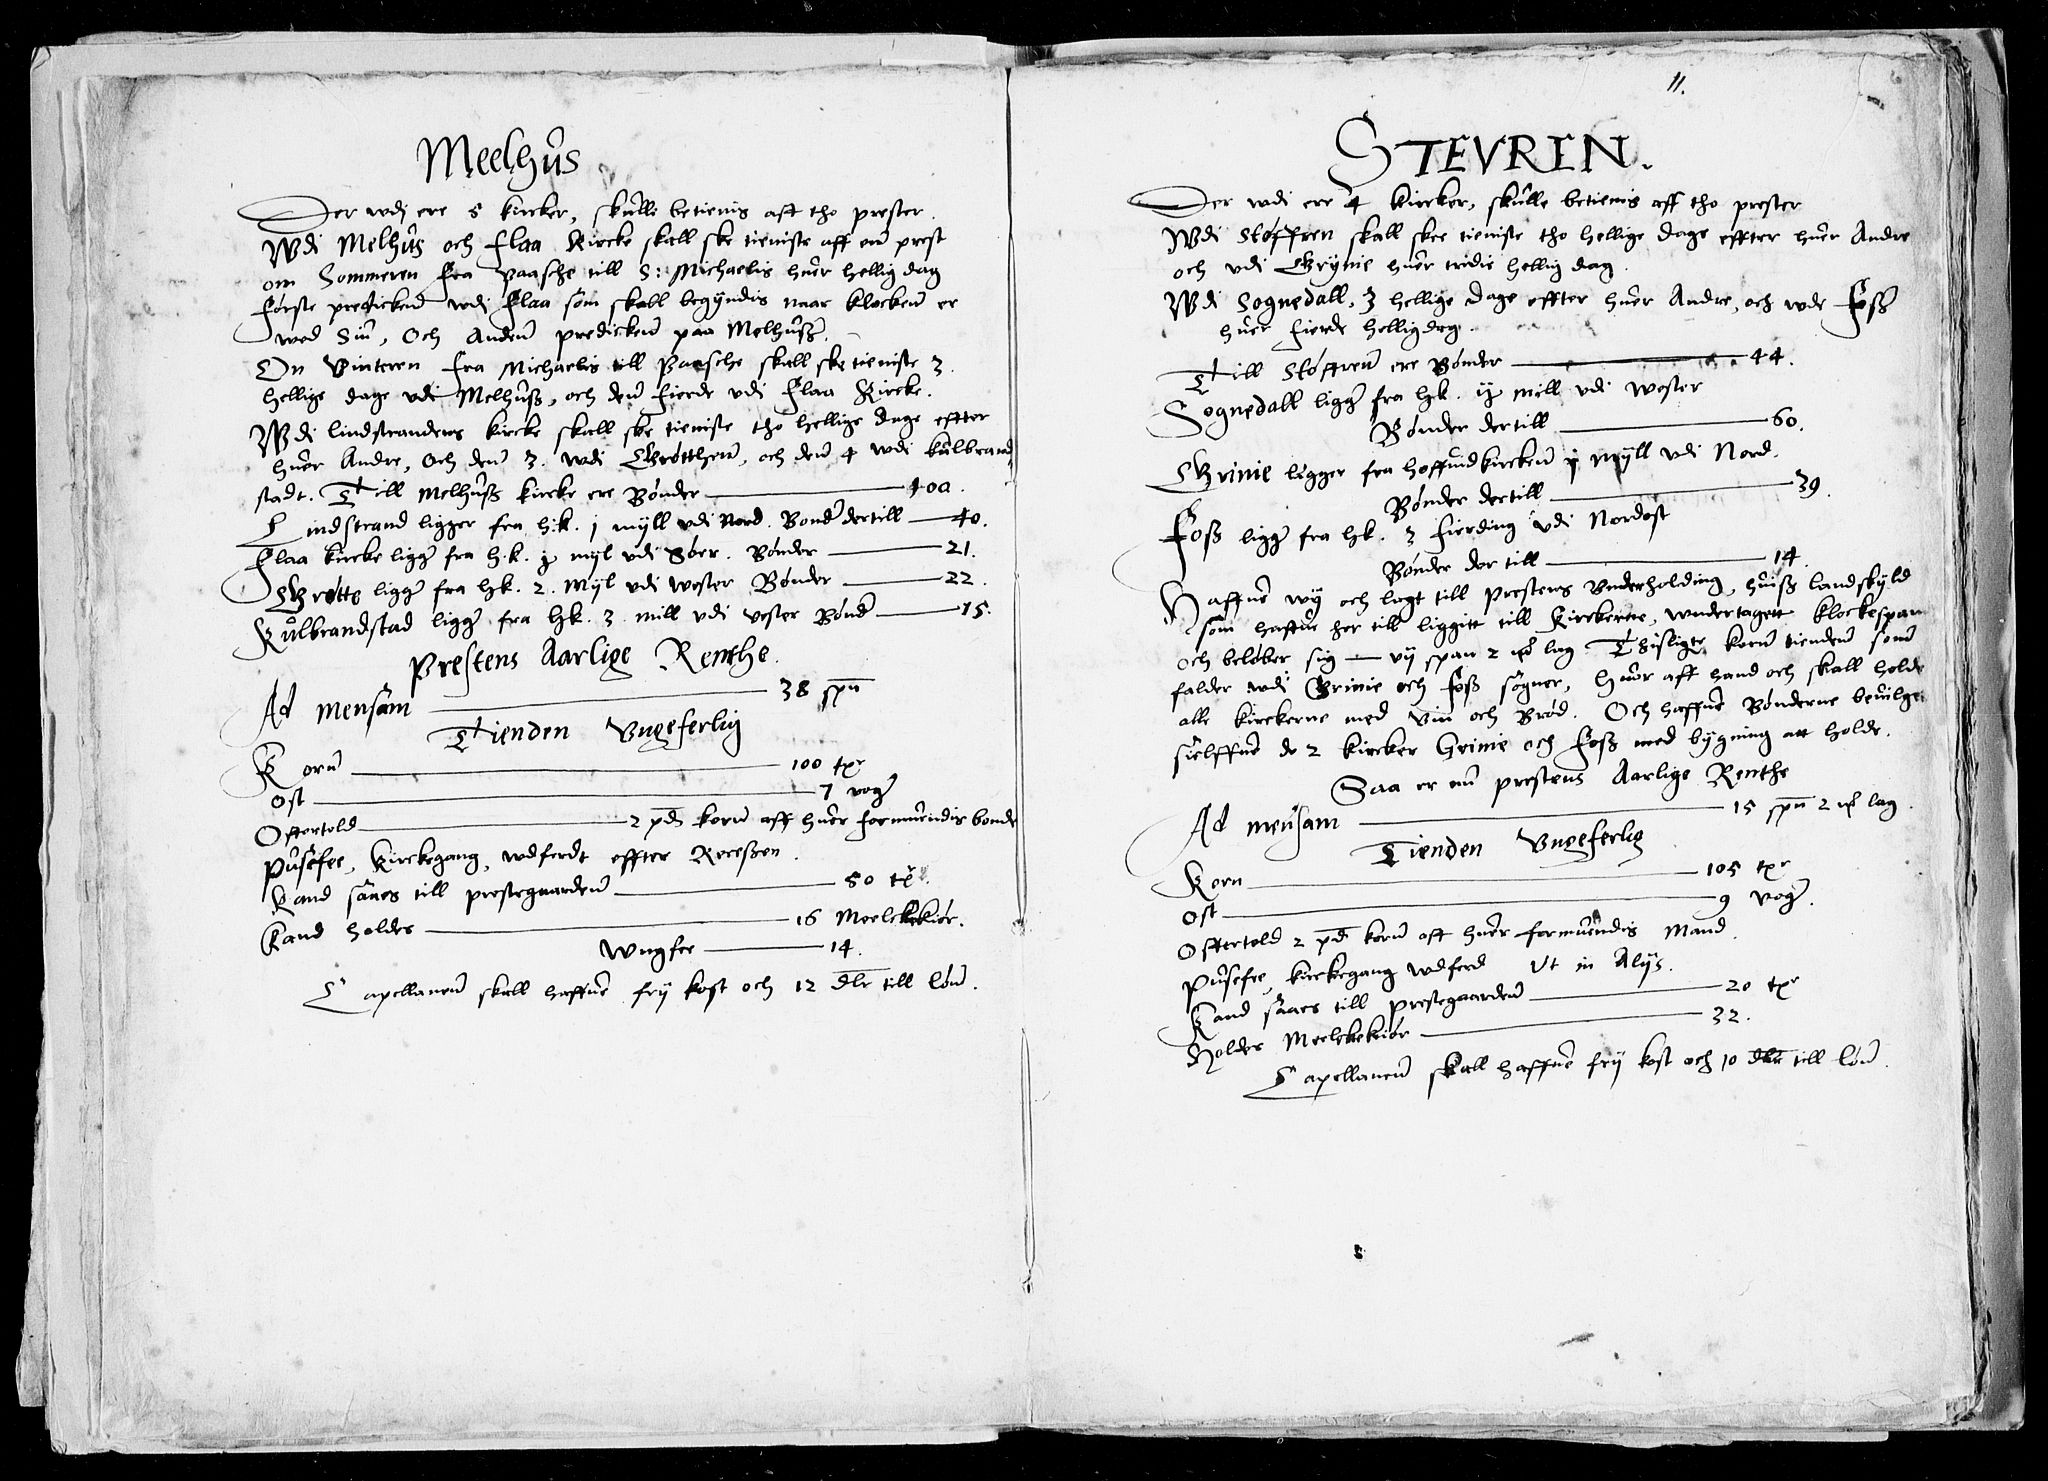 Meelhus
Der wdi ere 5 kircker, skulle betienis aff tho prester.
Wdi Melhus och Flaa Kircke skall ske tieniste aff een prest
om Sommeren fra Paasche till S: Michaelis huer hellig dag
første predicken wdi Flaa som skall begyndis naar klocken er
ved Siu, Och Anden predicken paa Melhuss.
Om Vinteren fra Michaelis till Paasche skall ske tieniste 3
hellige dage vdi Melhuss, och den fierde vdi Flaa Kircke.
Wdi lindstrandens kircke skall ske tieniste tho hellige dage effter
huer Andre, Och den 3. wdi Grøtthen, och den 4 wdi kulbrand-
stadt. Till Melhuss kircke ere Bønder — 100.
Lindstrand ligger fra h.k. j myll vdi Nord. Bønder dertill — 40.
Flaa kircke ligger fra h.k. j myl vdi Søer. Bønder — 21.
Grøtte ligger fra hk. 2. Myl vdi Wester Bønder — 22.
Kulbrandstad ligger fra hk. 3. mill vdi vester Bønder — 15.
Prestens Aarlige Renthe.
Ad mensam — 38 spn
Tienden Vngeferlig
Korn — 100 txr
Ost — 7 voger
Offertold — 2 pd korn aff huer formuendis bonde
Pusefee, Kirckegang, wdferdt effter Recessen.
Kand saaes till prestegaarden — 50 txr.
Kand holdes — 16 Meelckekiør.
Wngfee — 14.
Capellanen skall haffue frij kost och 12 dlr till løn.
11.
STEVREN.
Der wdi ere 4 kircker, skulle betienis aff tho prester
Wdi Støffren skall skee tieniste tho hellige dage effter huer Andre
och vdi Grynie huer tridie hellig dag.
Wdi Sognedall, 3 hellige dage effter huer Andre, och wdi Foss
huer fierde hellig dag.
Till Støffren ere Bønder — 44.
Sognedall ligger fra hk. ij mill vdi Wester
Bønder dertill — 60.
Grinie ligger fra hoffuidkircken j myll vdi Nord.
Bønder dertill — 39.
Foss ligger fra hk. 3 fierding vdi Nordost
Bønder der till — 14.
Haffue wy och lagt till Prestens Vnderholding, huiss landskyld
som haffue her till liggitt till Kirckerne, wndertagett klockespan
och beløber sig — vij span 2 lag Thisligte korn tienden som
falder wdi Grinie och Foss sogner, huor aff hand och skall holde
alle kirckerne med Vin och Brød. Och haffue Bønderne beuilget
sielffue de 2 kircker Grinie och Foss med bygning att holde.
Saa er nu prestens Aarlige Renthe
Ad mensam — 15 spn 2 lag.
Tienden Vngeferlig
Korn — 105 txr
Ost — 9 voger.
Offertold 2 pd korn aff huer formuendis Mand.
Pusefee, kirckegang wdferd Vt in Alijs.
Kand saaes till prestegaarden — 20 txr
Holdes Meelckekiør — 32.
Capellanen skall haffue frij kost och 10 dlr till løn.